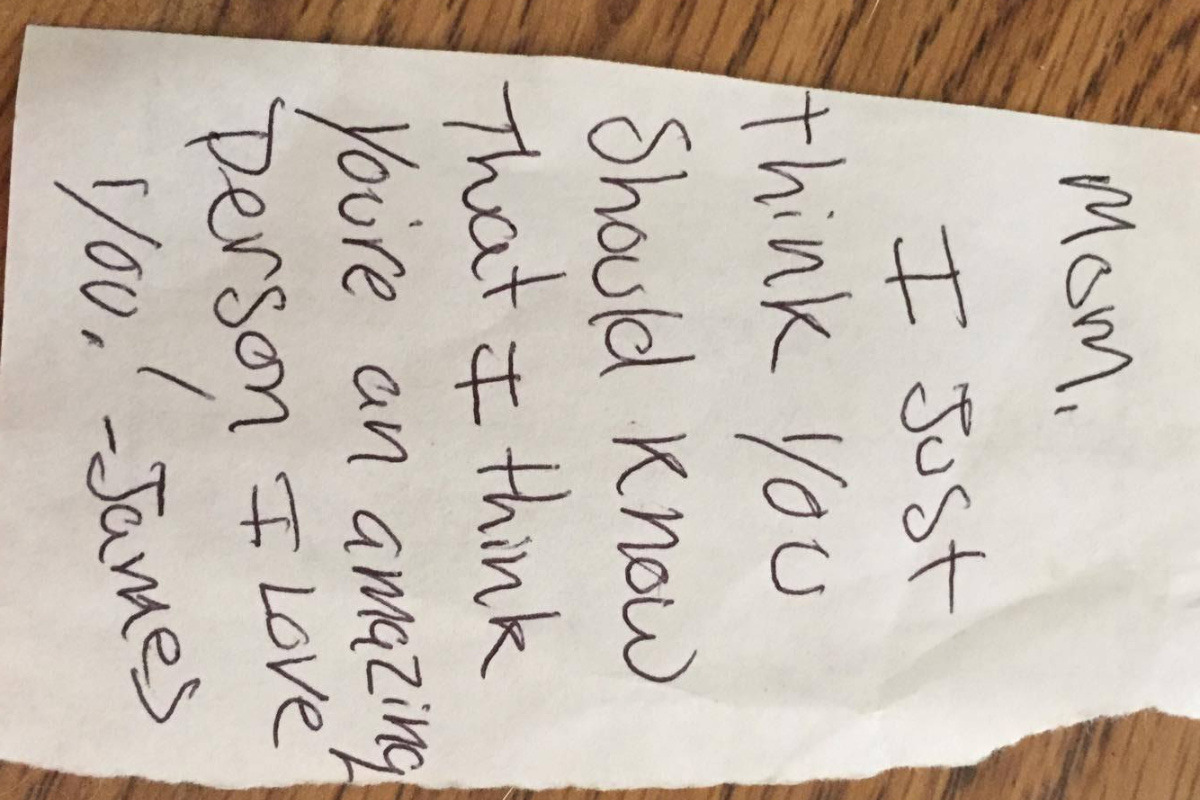 Mom,
I Just
think you
Should know
That I think
You're an amazing
person, I Love
you. -James